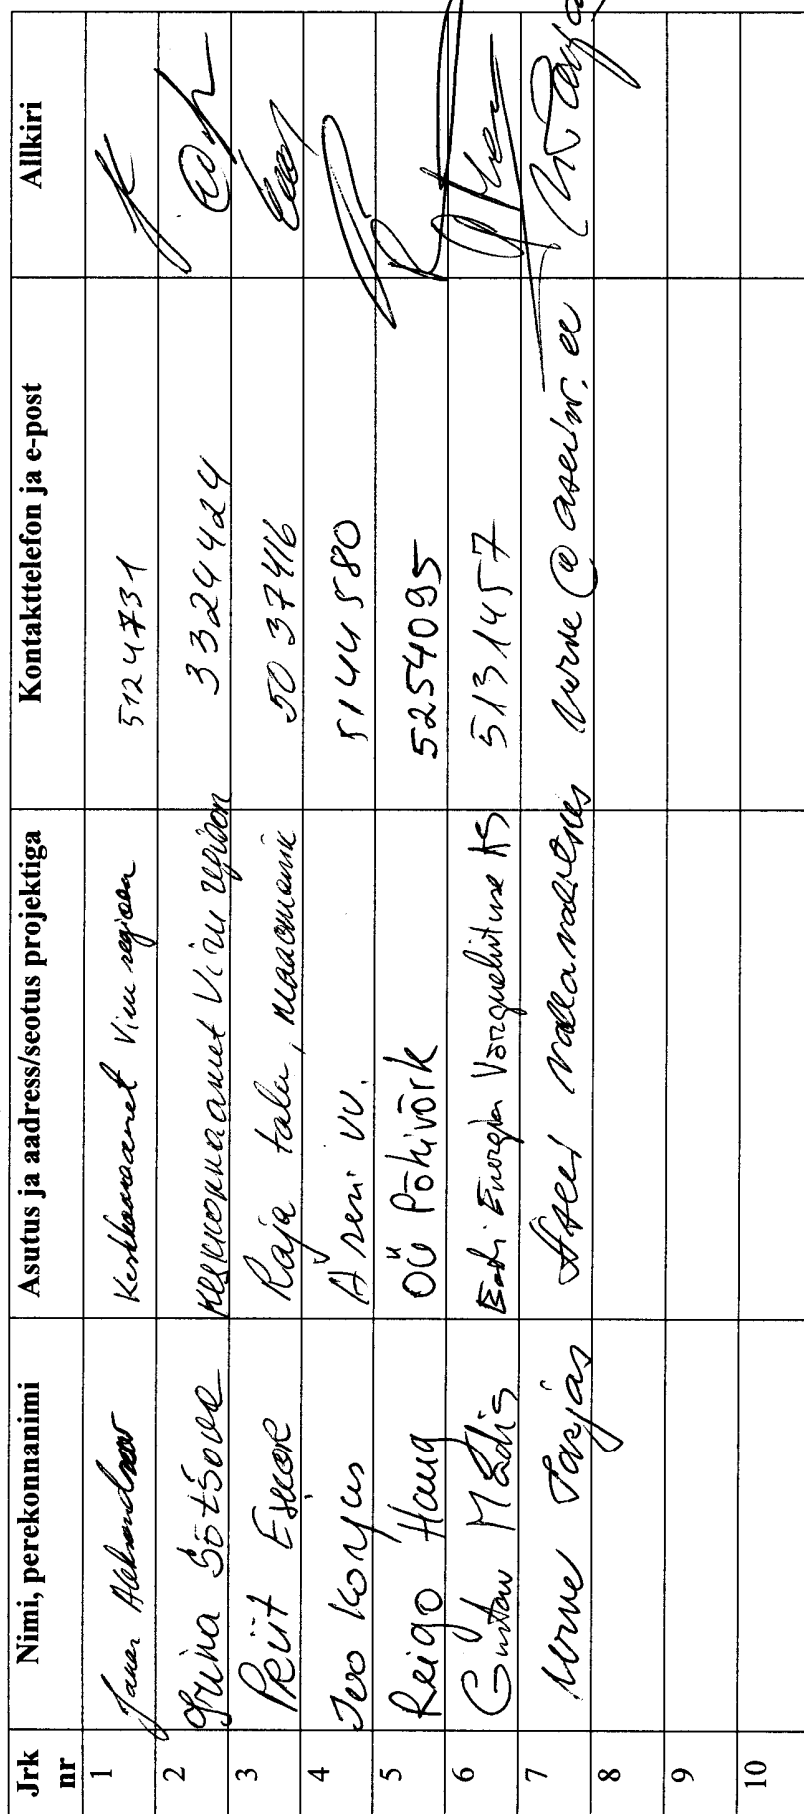 Jrk nr Nimi, perekonnanimi Asutus ja aadress/seotus projektiga Kontakttelefon ja e-post Allkiri
1 Janar Aleksandrov Keskkonnaamet Viru regioon 5124731
2 Irina Sõtšova Keskkonnaamet Viru regioon 3324424
3 Priit Esko Raja talu, maaomanik 50 37416
4 Ivo Korjus Aseri VV. 5144580
5 Reigo Haug OÜ Põhivõrk 5254095
6 Gustav Mädis Eesti Energia Võrguehituse AS 5131457
7 Urve Tarjas Aseri vallavalitsus urve@aseriv.ee
8
9
10